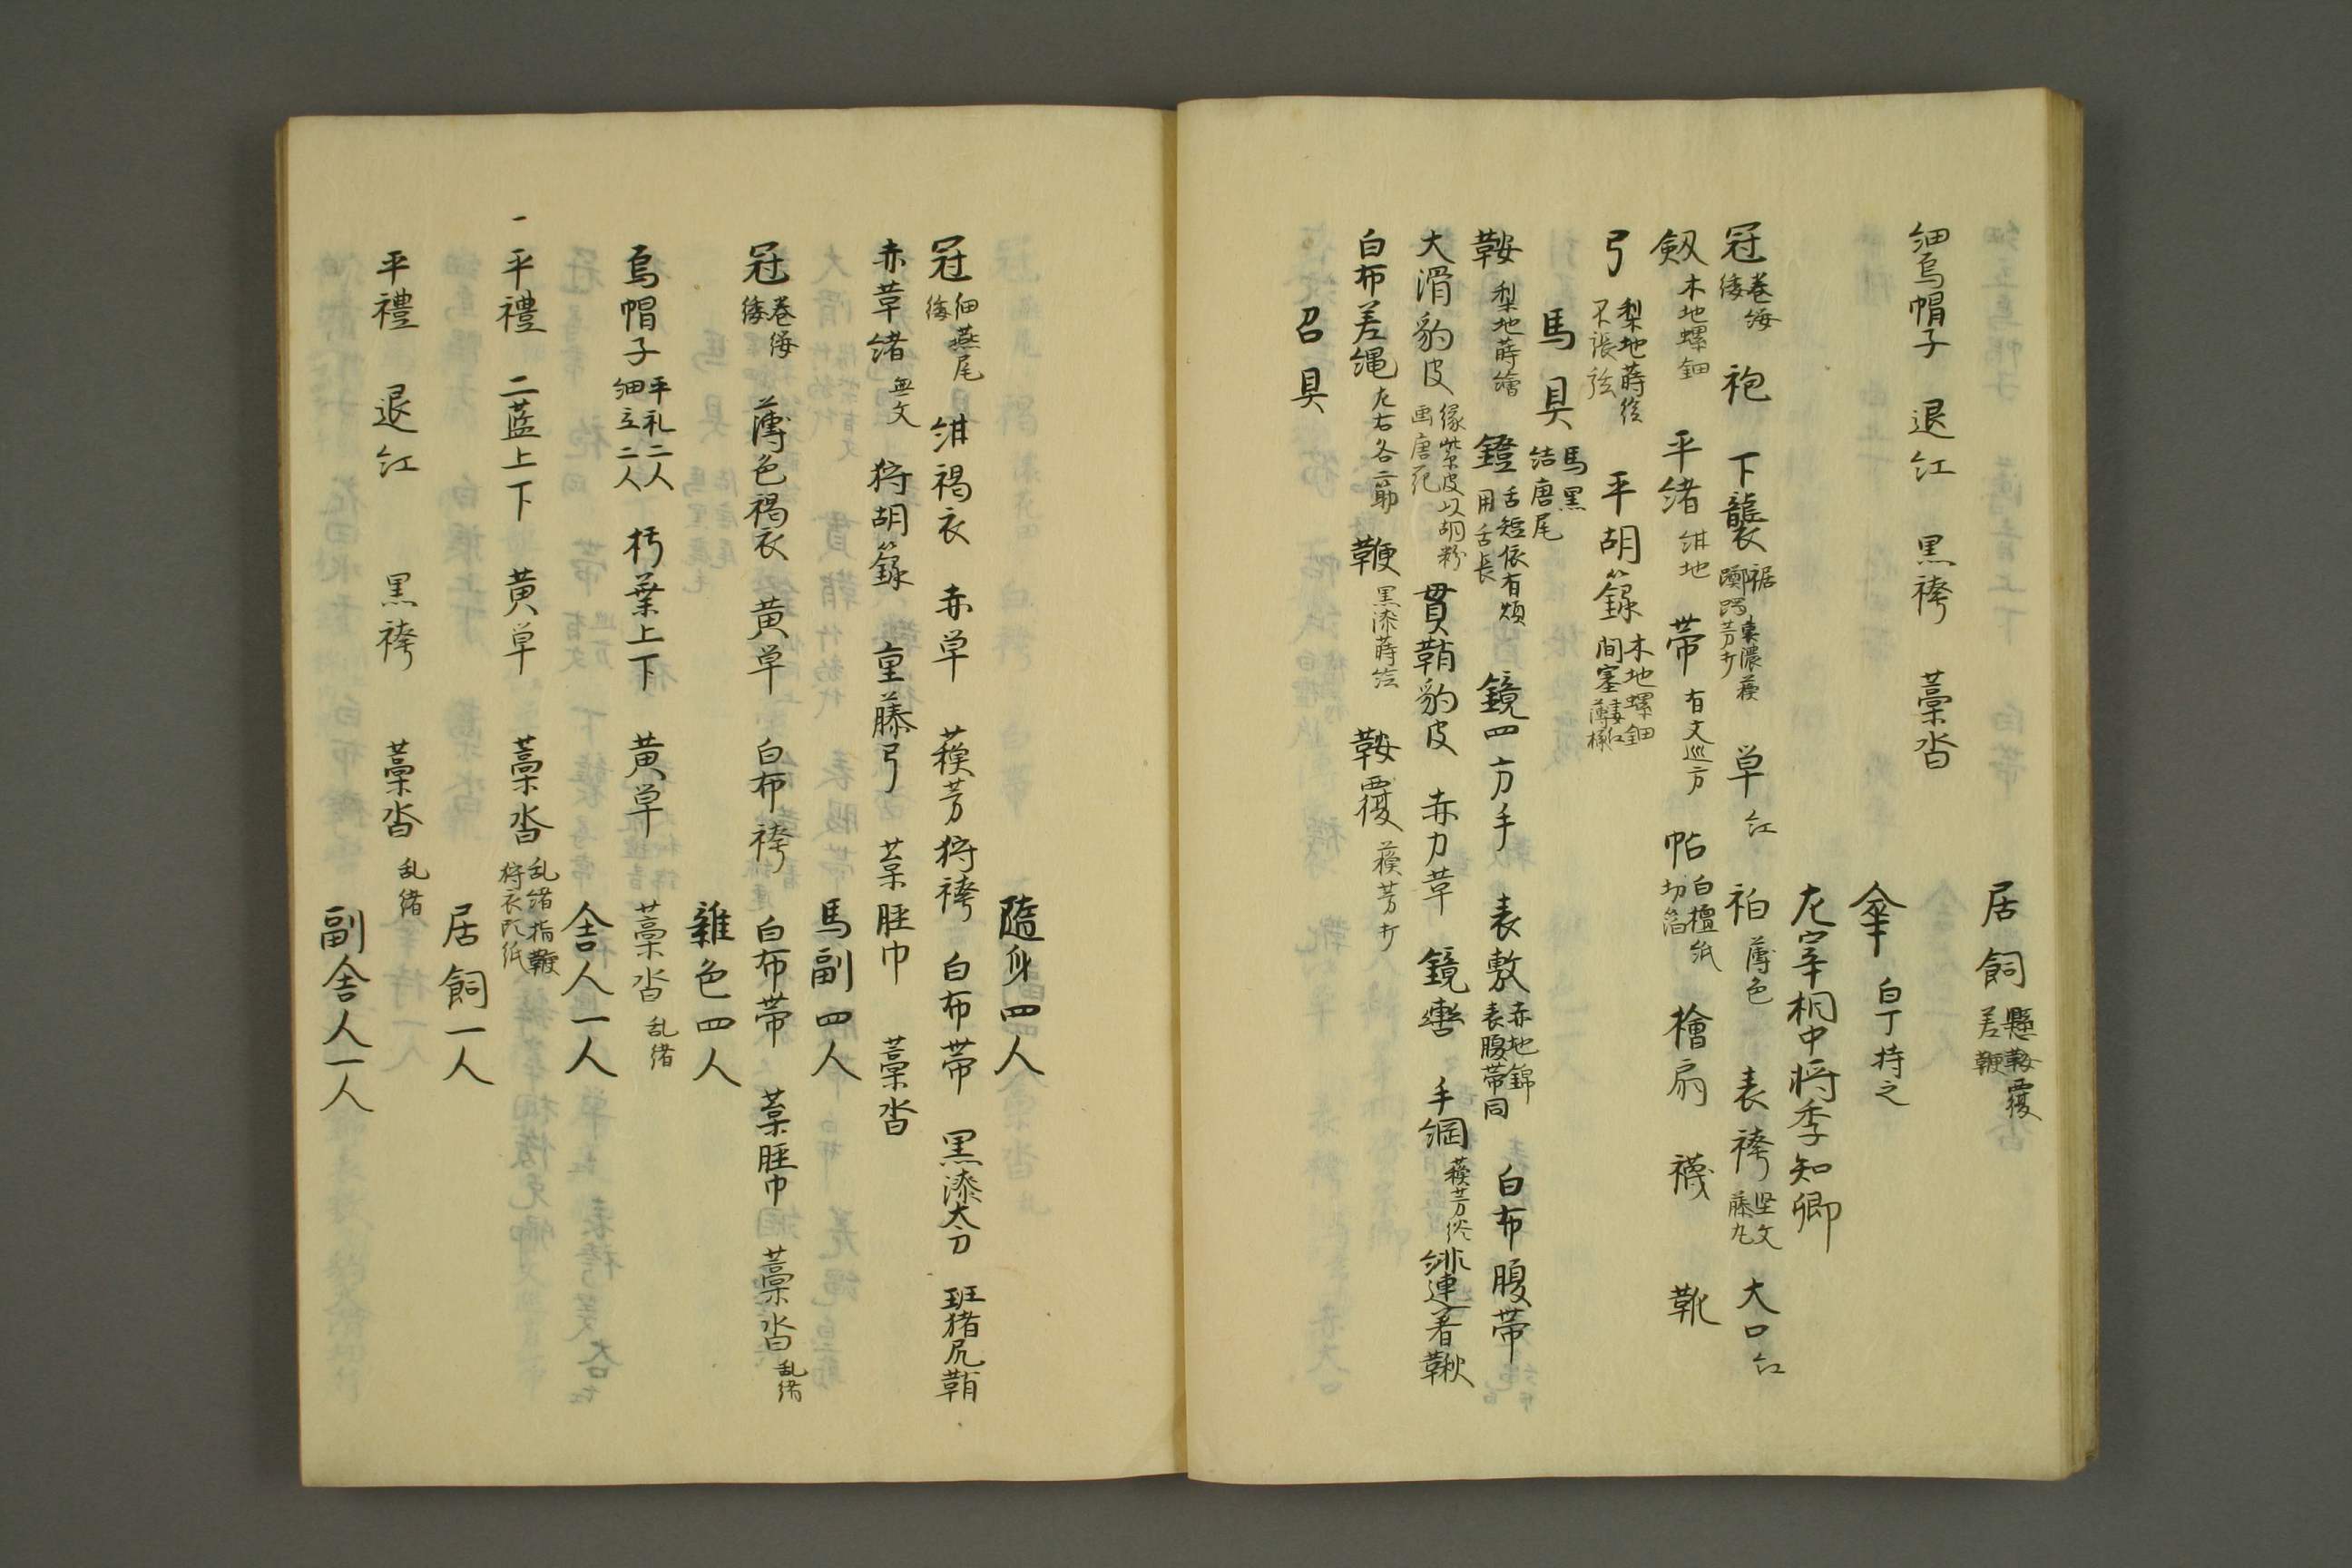 居飼 懸鞍覆差鞭
細烏帽子 退紅 黒袴 藁沓
傘 白丁持之
左宰相中将季知卿
冠 巻纓 緌 袍 下襲 裾 躑躅 東濃蘇芳打 単 紅 衵 薄色 表袴 堅文藤丸 大口 紅
剱 木地螺鈿 平緒 紺地 帯 有文巡方 帖 白檀紙切箔 檜扇 襪 靴
弓 梨地蒔絵不張弦 平胡籙 木地螺鈿間塞
馬具 馬黒結唐尾
鞍 梨地蒔繪 鐙 舌短依有煩用舌長 鏡四方手 表敷 赤地錦表腹帯同 白布腹帯
大滑豹皮 縁紫皮以胡粉画唐花 貫鞘豹皮 赤力革 鏡轡 手綱 蘇芳 緋連著鞦
白布差縄 左右各二筋 鞭 黒漆蒔絵 鞍覆 蘇芳打
召具
隨身四人
冠 細燕尾緌 紺褐衣 赤単 蘇芳狩袴 白布帯 黒漆太刀 斑猪尻鞘
赤革緒 無文 狩胡籙 重藤弓 葉脛巾 藁沓
馬副四人
冠 巻纓緌 薄色褐衣 黄単 白布袴 白布帯 葉脛巾 藁沓 乱緒
雜色四人
烏帽子 平礼二人細立二人 朽葉上下 黄単 藁沓 乱緒
舎人一人
一 平禮 二藍上下 黄単 藁沓 乱緒 指鞭狩衣
居飼一人
平禮 退紅 黒袴 藁沓 乱緒
副舎人一人